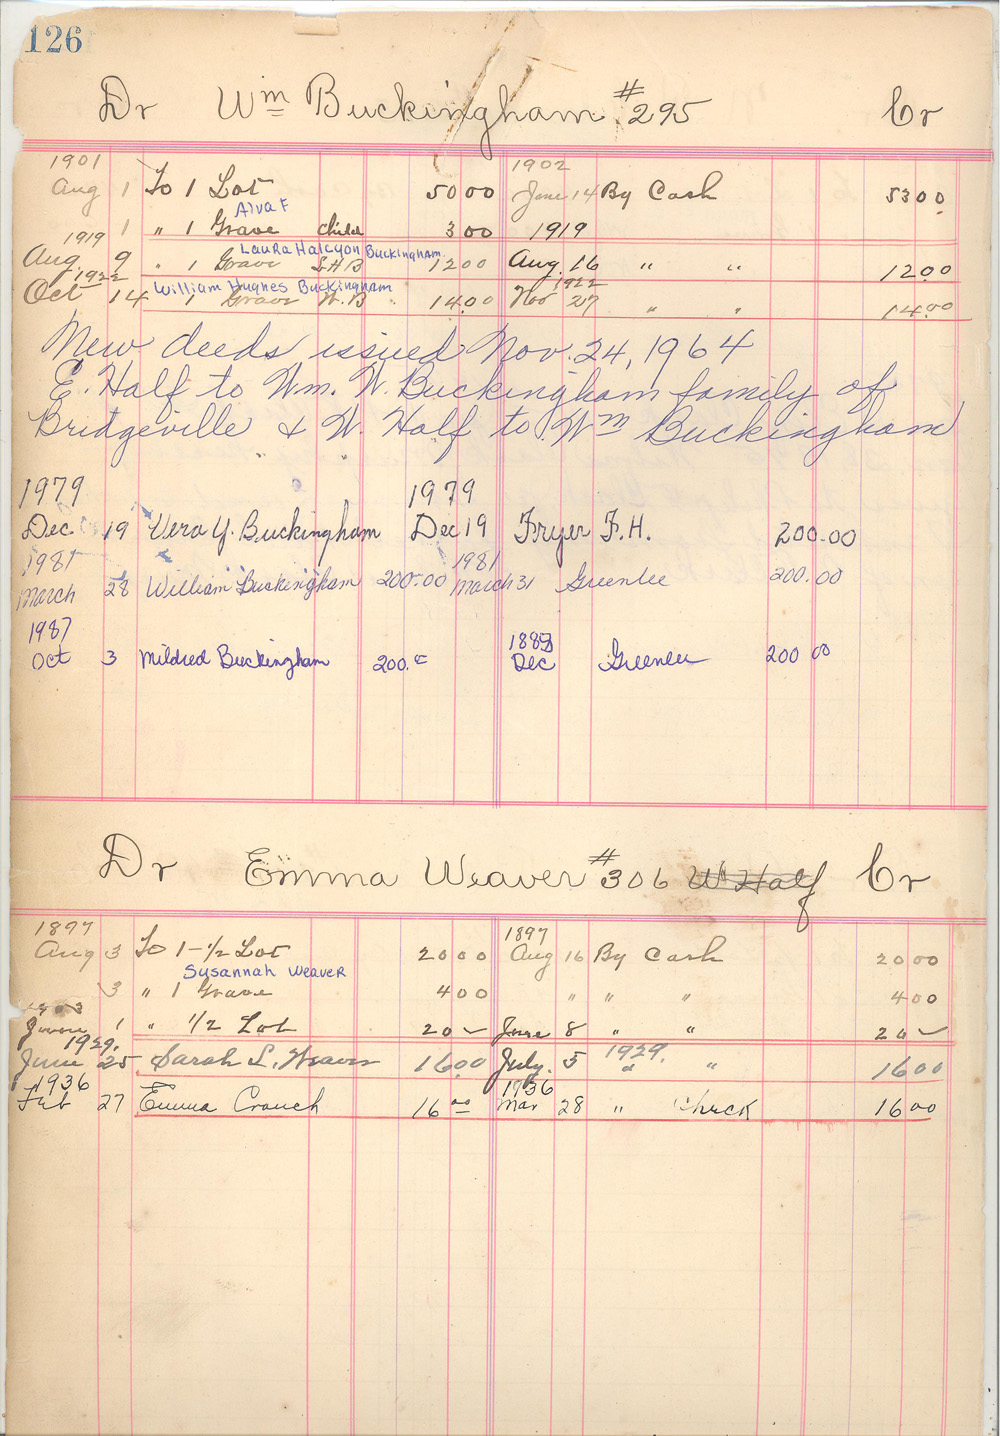 126
Dr Wm Buckingham #295 Cr
1901 1902
Aug 1 To 1 Lot 50 00 June 14 By Cash 53 00
Alva F
1 " 1 Grave Child 3 00 1919
1919 Laura Halcyon Buckingham
Aug 9 " 1 Grave L.H B 12 00 Aug. 16 " " 12 00
1922 William Hughes Buckingham 1922
Oct 14 1 Grave W. B " 14.00 Nov 27 " " 14.00
New deeds issued Nov. 24, 1964
E. Half to Wm. W. Buckingham family of
Bridgeville & W. Half to Wm Buckingham
1979 1979
Dec 19 Vera Y. Buckingham Dec 19 Fryer F.H. 200.00
1981 1981
March 28 William Buckingham 200.00 March 31 Greenlee 200.00
1987
Oct 3 Mildred Buckingham 200. Dec Greenlee 200 00
Dr Emma Weaver #306 W Half Cr
1897 1897
Aug 3 To 1-1/2 Lot 20 00 Aug 16 By Cash 20 00
Susannah Weaver
3 " 1 Grave 4 00 " " " 4 00
1903
June 1 " 1/2 Lot 20 – June 8 " " 20 –
1929. 1929.
June 25 Sarah L. Weaver 16.00 July. 5 " " 16 00
1936 1936
Feb 27 Emma Crouch 16 00 Mar 28 " Check 16 00